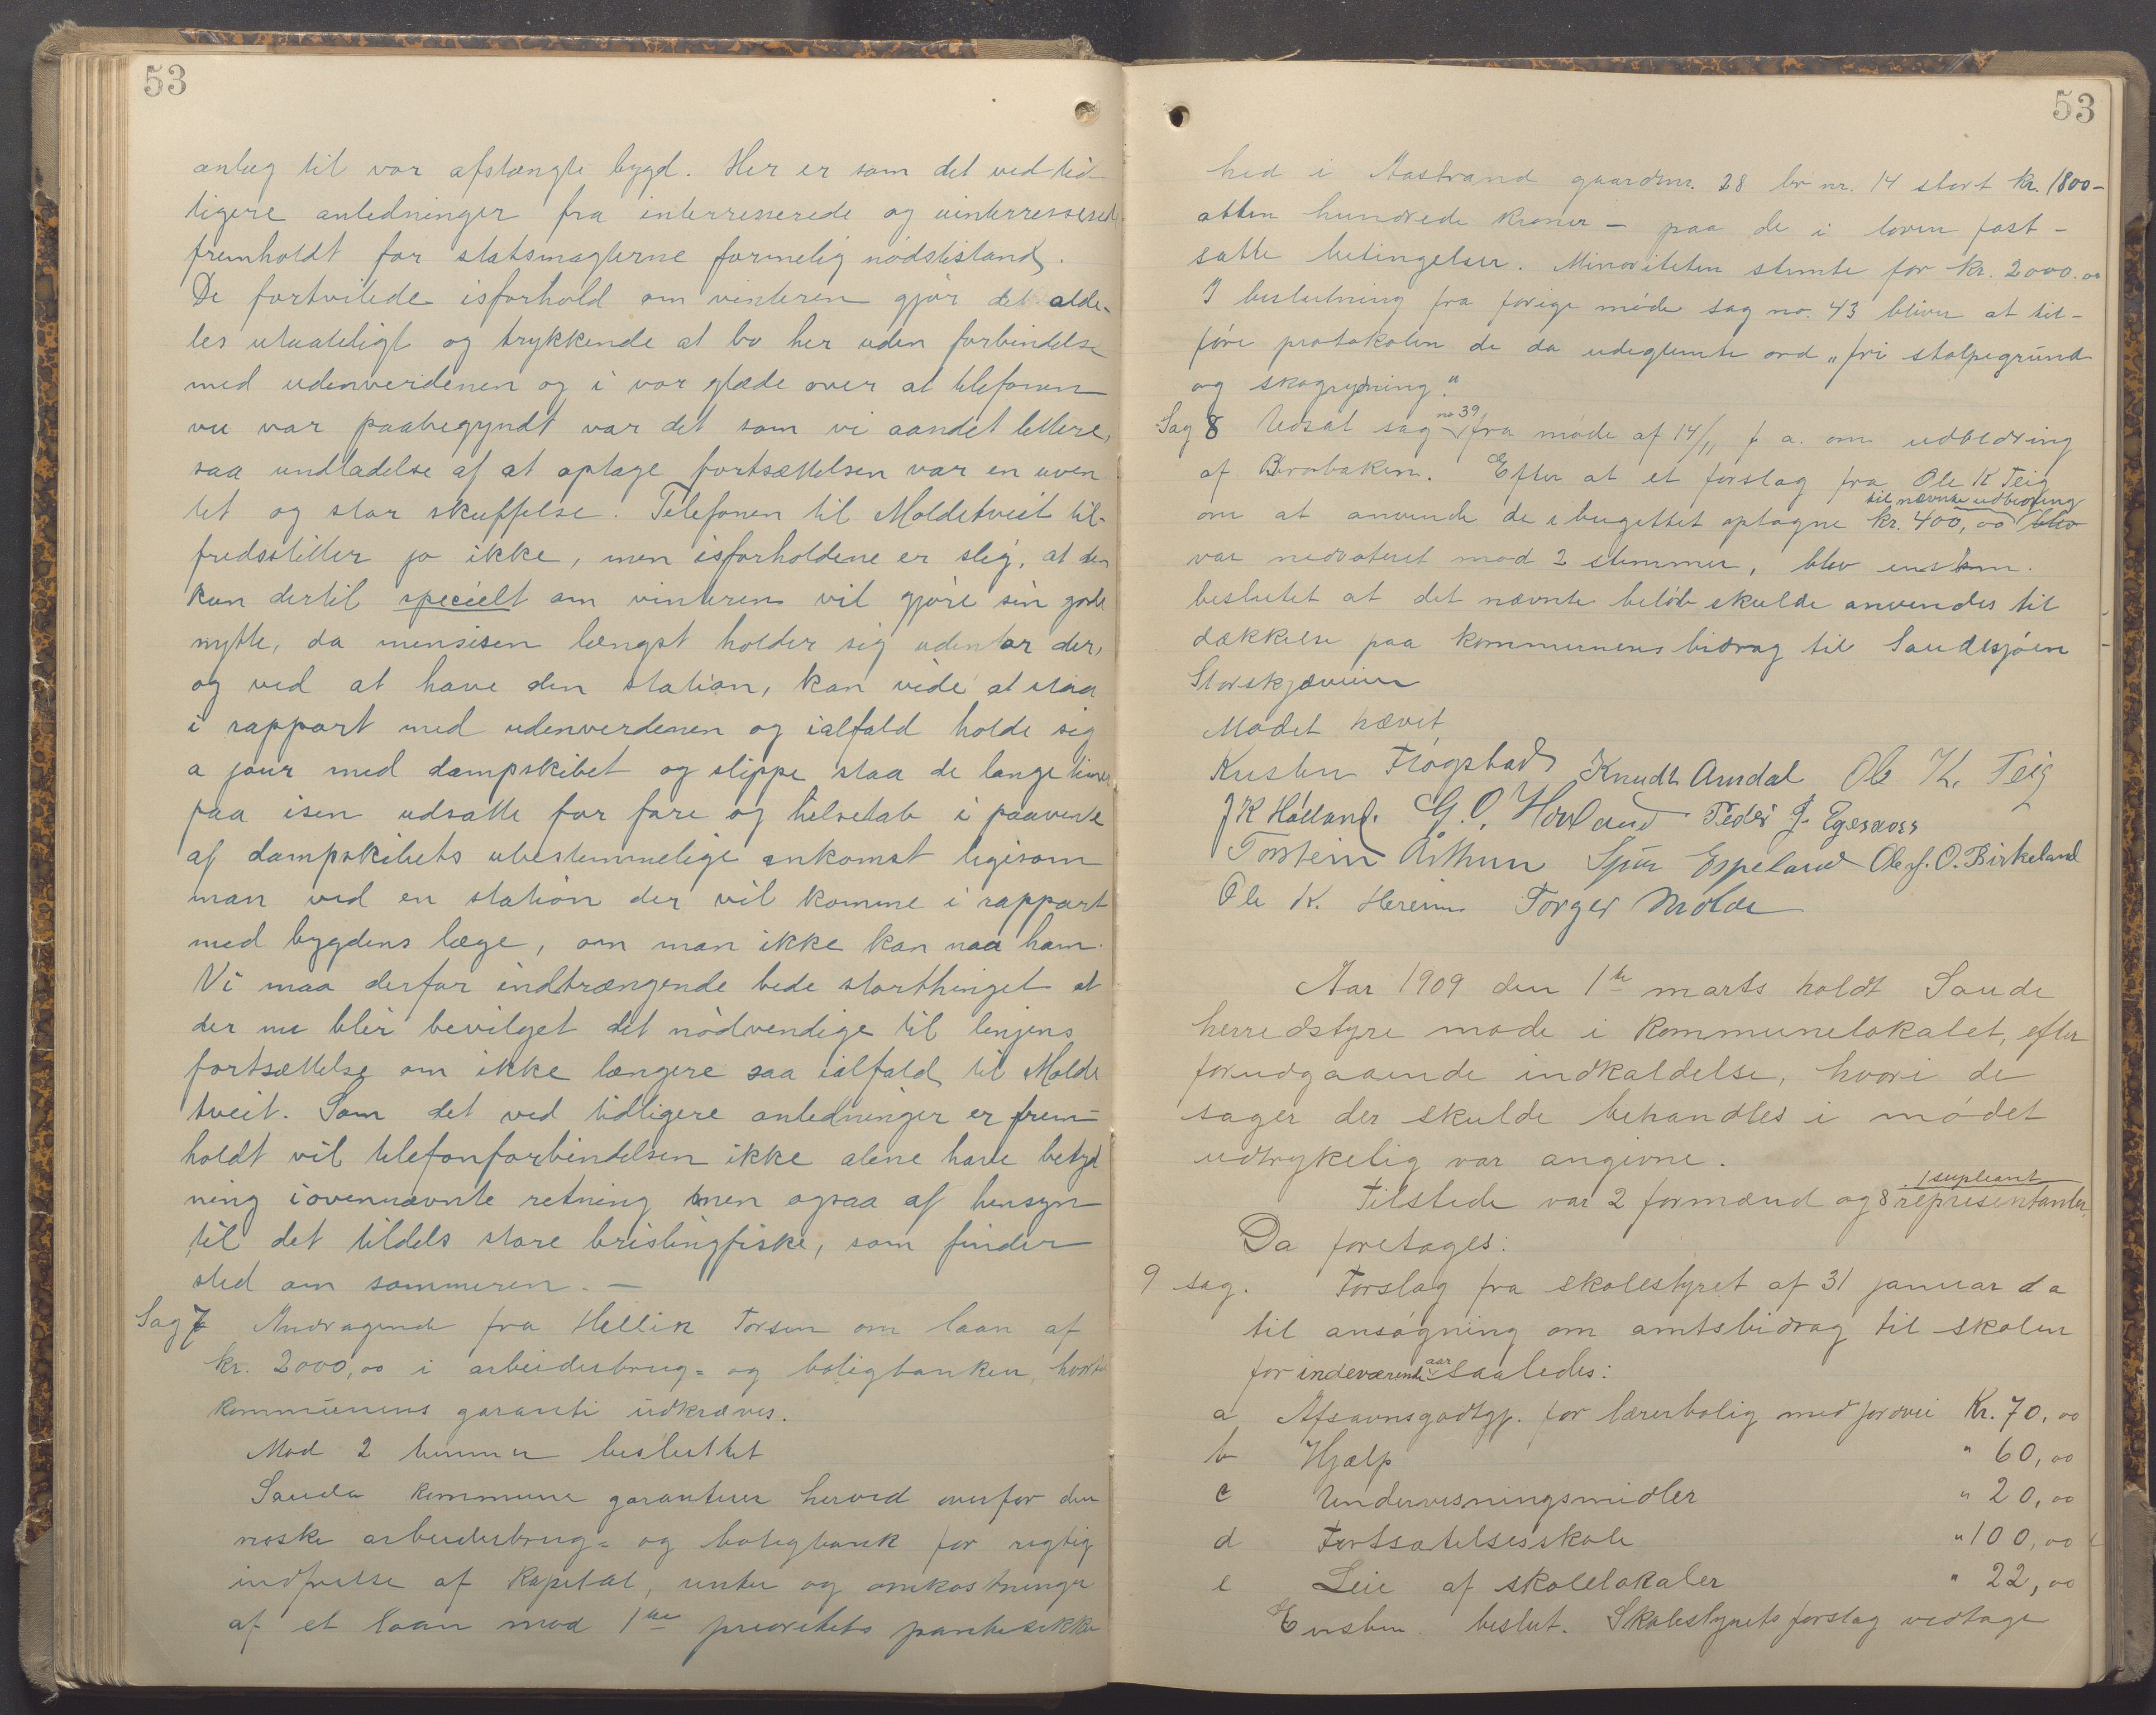 53
anlæg til vor afstængte bygd. Her er som det ved tid-
ligere anledninger fra interresserede og uinterresserede
fremholdt for statsmagterne formelig nødstilstand.
De fortvilede isforhold om vinteren gjør det alde-
les utaaleligt og trykkende at bo her uden forbindelse
med udenverdenen og i vor glæde over at telefonen
nu var paabegyndt var det som vi aandet lettere,
saa undladelse af at optage fortsættelsen var en uven
tet og stor skuffelse. Telefonen til Moldetveit til-
fredsstiller jo ikke, men isforholdene er slig, at den
kun dertil specielt om vinteren vil gjøre sin gode
nytte, da mensisen længst holder sig udenfor der,
og ved at have den station, kan vide at staa
i rapport med udenverdenen og ialfald holde sig
a jour med dampskibet og slippe staa de lange timer
paa isen udsatte for fare og helsetab i paavente
af dampskibets ubestemmelige ankomst ligesom
man ved en station der vil komme i rapport
med bygdens læge, om man ikke kan naa ham.
Vi maa derfor indtrængende bede storthinget at
der nu blir bevilget det nødvendige til linjens
fortsættelse om ikke længere saa ialfald til Molde
tveit. Som det ved tidligere anledninger er frem-
holdt vil telefonforbindelsen ikke alene have betyd
ning i ovennævnte retning men ogsaa af hensyn
til det tildels store brislingfiske, som finder
sted om sommeren. —
Sag 7 Andragende fra Hellik Torsen om laan af
kr. 2000,00 i arbeiderbrug= og boligbanken, hvortil
kommunens garanti udkræves.
Mod 2 stemmer besluttet
Sauda kommune garanterer herved overfor den
norske arbeiderbrug= og boligbank for rigtig
indfrielse af kapital, renter og omkostninger
af et laan mod 1ste prioritets pantesikker
53
hed i Aastrand gaardsnr. 28 br nr. 14 stort kr. 1800-
atten hundrede kroner – paa de i loven fast-
satte betingelser. Minoriteten stemte for kr. 2000.00
I beslutning fra forige møde sag no. 43 bliver at til-
føre protokolen de da udeglemte ord "fri stolpegrund
og skogrydning."
Sag 8 Udsat sag no 39 fra møde af 14/11 f a. om udbedring
af Brobakken. Efter at et forslag fra Ole K Teig
om at anvende de i bugettet optagne kr. 400,00 til nævnte udbedring blev
var nedvoteret mod 2 stemmer, blev enstem.
beslutet at det nævnte beløb skulde anvendes til
dækkelse paa kommunens bidrag til Saudesjøen
Storskjæveien
Mødet hævet
Kristen Fløgstad Knudt Amdal Ole K. Teig
J K Hølland. G. O. Hovland Peder J. Egernæss
Torstein Arthun Sjur Espeland Ole J. O. Birkeland
Ole K. Hereim Torger Molde
Aar 1909 den 1te marts holdt Saude
herredstyre møde i kommunelokalet, efter
forudgaaende indkaldelse, hvori de
sager der skulde behandles i mødet
udtrykelig var angivne.
Tilstede var 2 formænd og 8 representanter, 1 supleant
Da foretages:
9 sag. Forslag fra skolestyret af 31 januar da
til ansøgning om amtsbidrag til skolen
for indeværende aar saaledes:
a Afsavnsgodtgj. for lærerbolig med jordvei Kr. 70,00
b Hjælp " 60,00
c Undervisningsmidler " 20,00
d Fortsætelsesskole " 100,00
e Leie af skolelokaler " 22,00
Enstem. beslut. Skolestyrets forslag vedtage